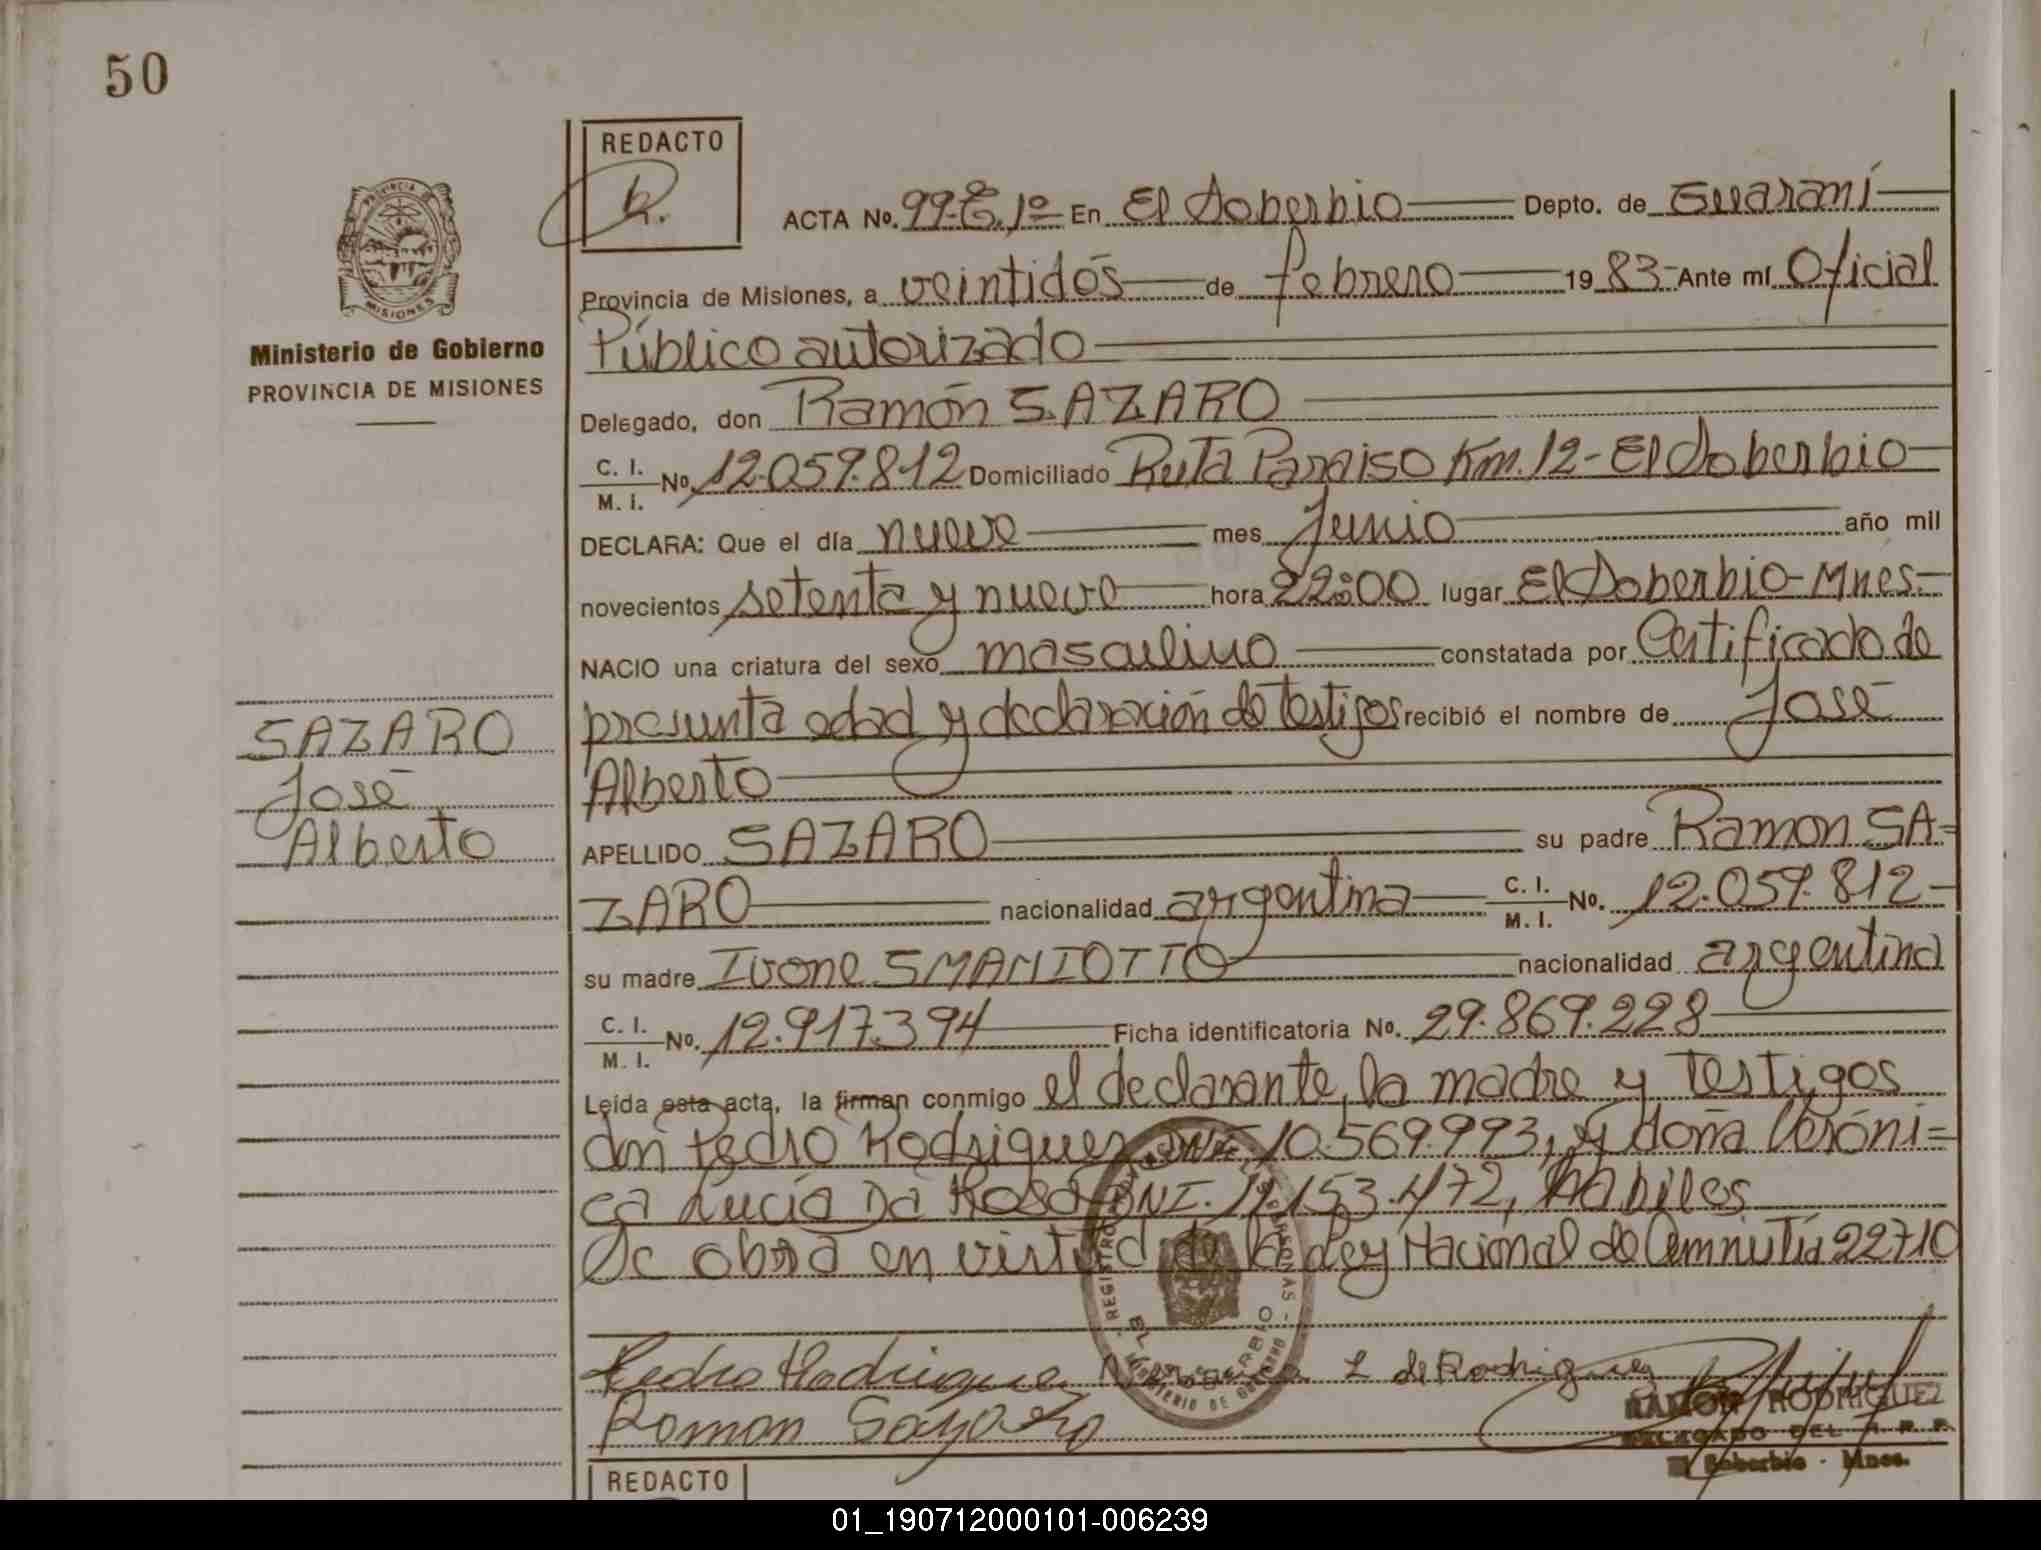 50
REDACTO
ACTA No. 99-E.1º En El Soberbio Depto. de Guaraní
Provincia de Misiones, a veintidós de febrero 19 83 Ante mí Oficial
Ministerio de Gobierno
PROVINCIA DE MISIONES
Público autorizado
Delegado, don Ramón SAZARO
C. I. M. I. No. 12.059.812 Domiciliado Ruta Paraiso Km. 12 - El Soberbio
DECLARA: Que el día nueve mes Junio año mil
novecientos setenta y nueve hora 22:00 lugar El Soberbio - Mnes.
NACIO una criatura del sexo masculino constatada por Certificado de
presunta edad y declaración de testigos recibió el nombre de José
Alberto
SAZARO
José
Alberto
APELLIDO SAZARO su padre Ramon SA=
ZARO nacionalidad argentina C. I. M. I. No. 12.059.812
su madre Ivone SMANIOTTO nacionalidad argentina
C. I. M. I. No. 12.917.394 Ficha identificatoria No. 29.869.228
Leída esta acta, la firman conmigo el declarante, la madre y testigos
don Pedro Rodriguez DNI. 10.569.993, y doña Veróni=
ca Lucía Da Rosa DNI. 11.153.472, hábiles
Se obra en virtud de la Ley Nacional de Amnistía 22710
Pedro Rodriguez L de Rodriguez
Ramon Sazaro
RAMON RODRIGUEZ
DELEGADO DEL R. P. P.
El Soberbio - Mnes.
REDACTO
01_190712000101-006239